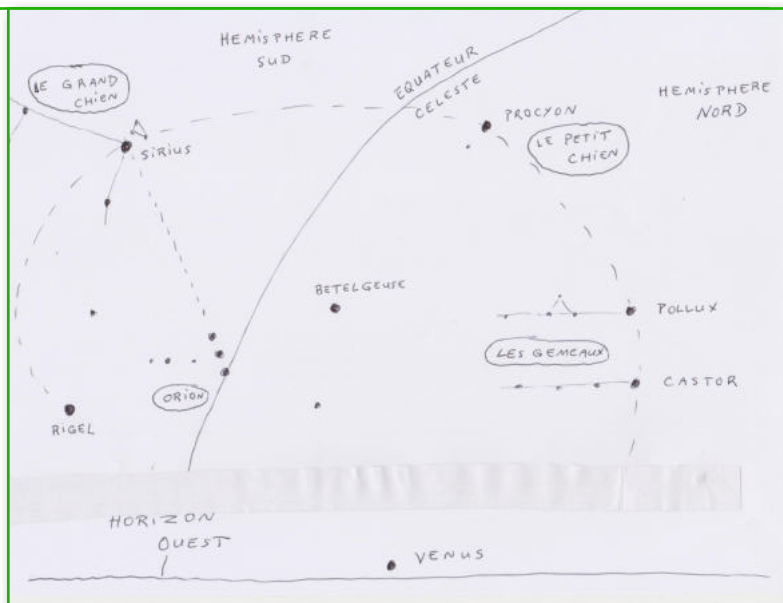 HEMISPHERE
SUD
LE GRAND
CHIEN
EQUATEUR
CELESTE
HEMISPHERE
NORD
PROCYON
SIRIUS
LE PETIT
CHIEN
BETELGEUSE
POLLUX
LES GEMEAUX
CASTOR
ORION
RIGEL
HORIZON
OUEST
VENUS